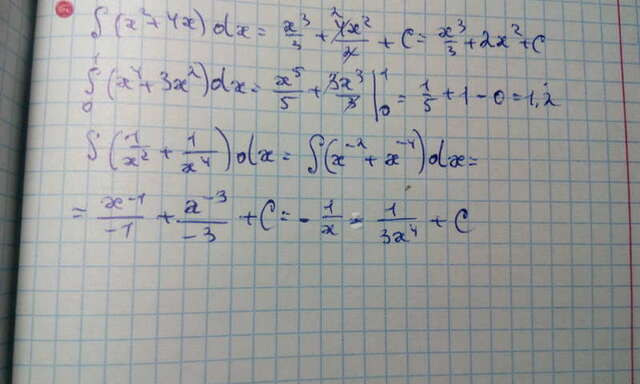 ∫(x²+4x)dx = x³/3 + 4x²/2 + C = x³/3 + 2x² + C
∫₀¹(x⁴+3x²)dx = x⁵/5 + 3x³/3 |₀¹ = 1/5 + 1 - 0 = 1,2
∫(1/x² + 1/x⁴)dx = ∫(x⁻² + x⁻⁴)dx =
= x⁻¹/-1 + x⁻³/-3 + C = - 1/x - 1/3x⁴ + C